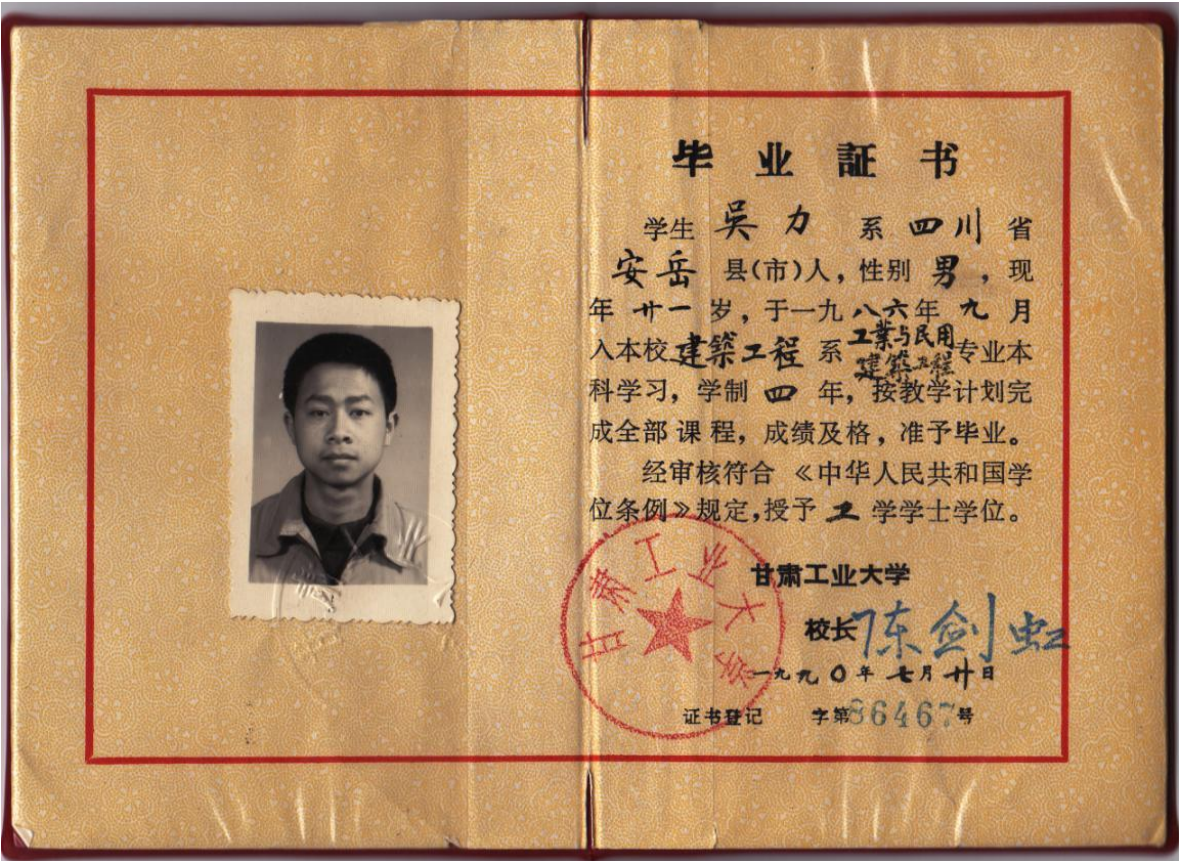 毕业証书
学生 吴力 系 四川 省
安岳 县(市)人，性别 男，现
年 廿一 岁，于一九八六年 九 月
入本校 建築工程 系 工業与民用建築工程 专业本
科学习，学制 四 年，按教学计划完
成全部课程，成绩及格，准予毕业。
经审核符合《中华人民共和国学
位条例》规定，授予 工 学学士学位。
甘肃工业大学
甘肃工业大学
校长 陈剑虹
一九九〇年 七月 廿日
证书登记 字第86467号